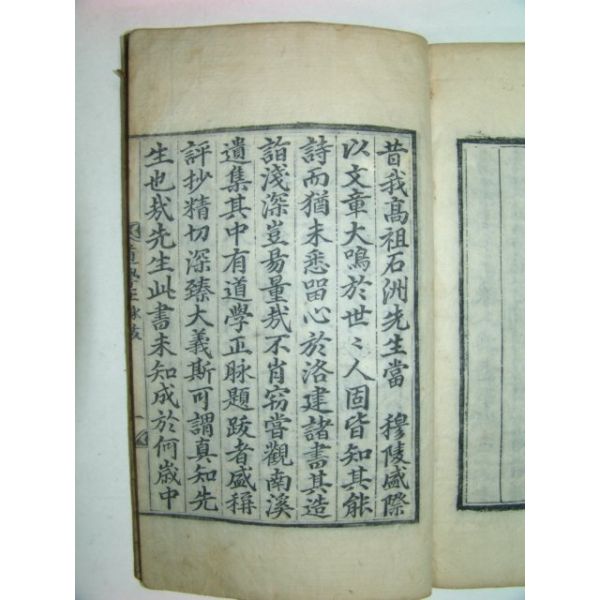 昔我高祖石洲先生當　穆陵盛際
以文章大鳴於世〻人固皆知其能
詩而猶未悉留心於洛建諸書其造
詣淺深豈易量哉不肖窃嘗觀南溪
遺集其中有道學正脉題跋者盛稱
評抄精切深臻大義斯可謂真知先
生也哉先生此書未知成於何歲中
道學正脉跋
一